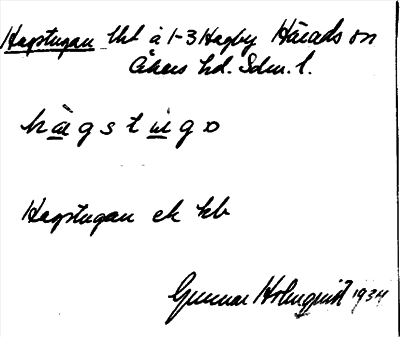 Hagstugan tht å 1-3 Hagby Härads sn
Åkers hd. Sdm. l.
Hagstugan ek kb
Gunnar Holmquist 1934